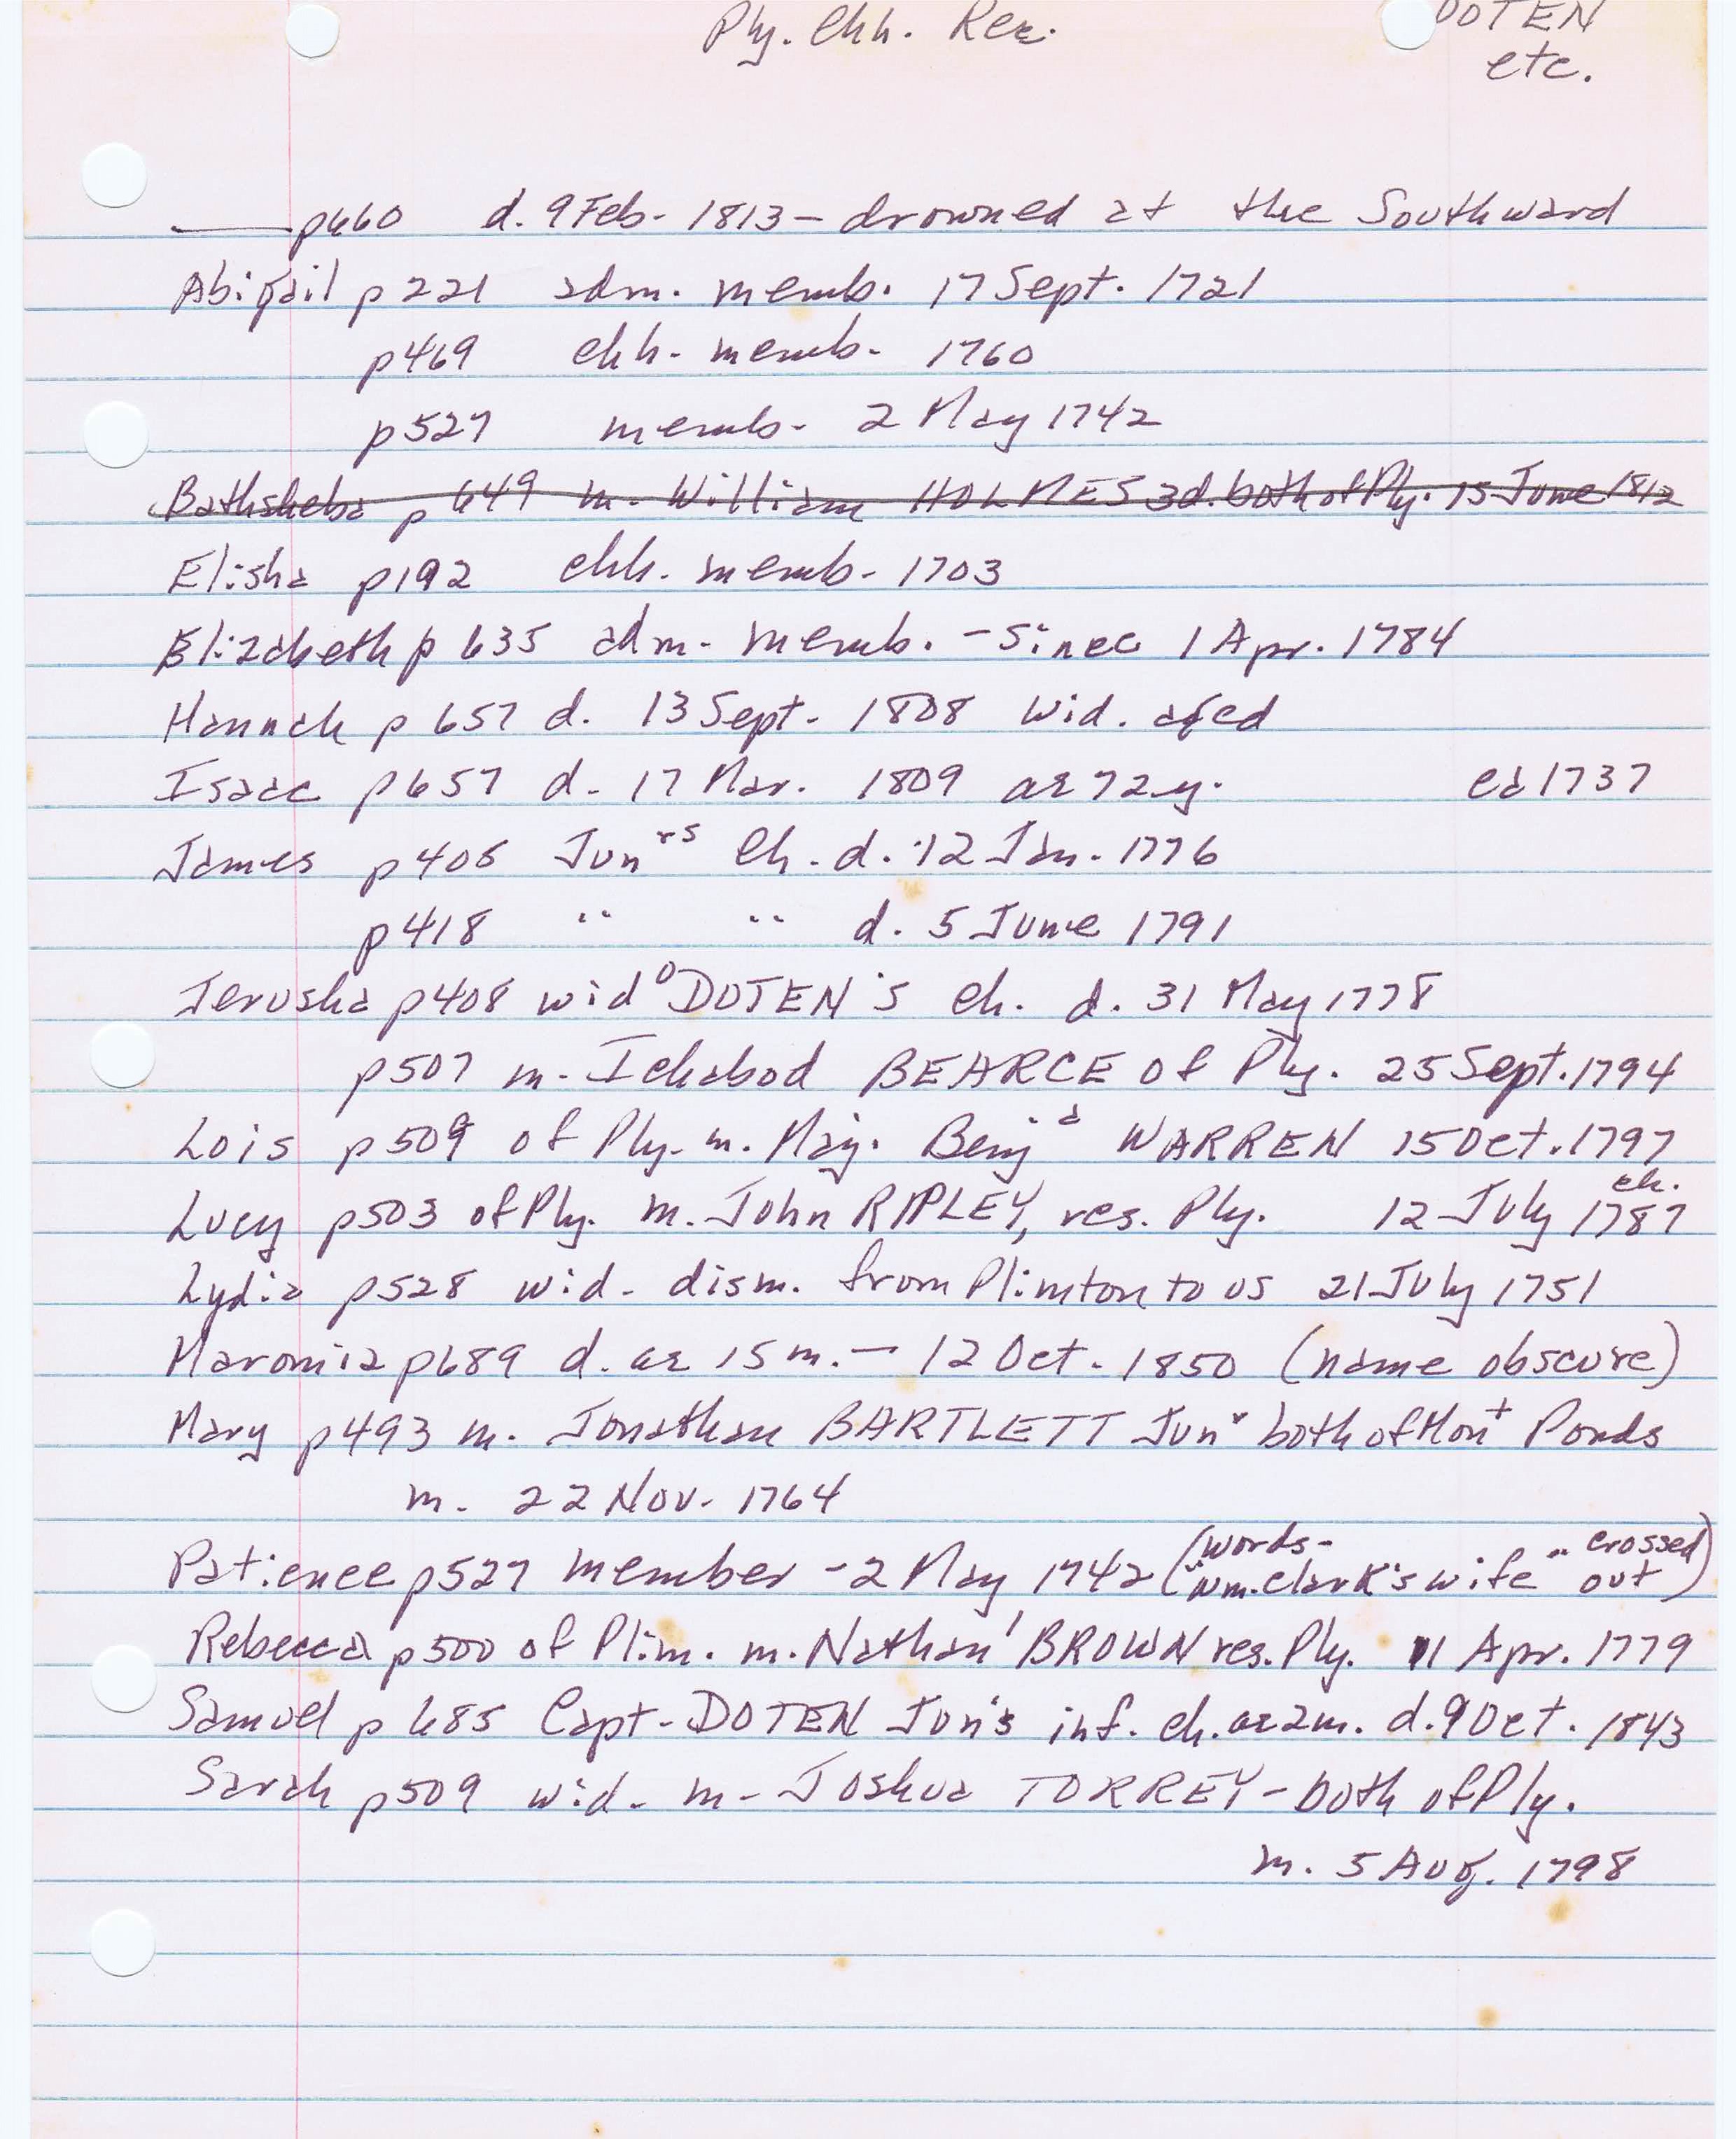 Ply. Chh. Rec.
DOTEN
etc.
—— p660 d. 9 Feb. 1813 – drowned at the Southward
Abigail p 221 adm. memb. 17 Sept. 1721
p469 chh. memb. 1760
p527 memb. 2 May 1742
Bathsheba p 649 m. William HOLMES 3d. both of Ply. 15 June 1812
Elisha p192 chh. memb. 1703
Elizabeth p 635 adm. memb. – since 1 Apr. 1784
Hannah p 657 d. 13 Sept. 1808 wid. aged
Isaac p657 d. 17 Mar. 1809 ae 72 y. ca 1737
James p 405 Junrs Ch. d. 12 Jan. 1776
p418 " " d. 5 June 1791
Jerusha p408 wido DOTEN's ch. d. 31 May 1778
p507 m. Ichabod BEARCE of Ply. 25 Sept. 1794
Lois p509 of Ply. m. Maj. Benja WARREN 15 Oct. 1797
Lucy p503 of Ply. m. John RIPLEY, res. Ply. 12 July ch. 1787
Lydia p528 wid. dism. from Plimton to us 21 July 1751
Maromia p689 d. ae 15 m. – 12 Oct. 1850 (name obscure)
Mary p493 m. Jonathan BARTLETT Junr both of Mont Ponds
m. 22 Nov. 1764
Patience p527 member – 2 May 1742 (words – "Wm. Clark's wife" crossed out)
Rebecca p500 of Plim. m. Nathanl BROWN res. Ply. 11 Apr. 1779
Samuel p 685 Capt. DOTEN Jun's inf. ch. ae 2 m. d. 9 Oct. 1843
Sarah p509 wid. m. Joshua TORREY – both of Ply.
m. 5 Aug. 1798